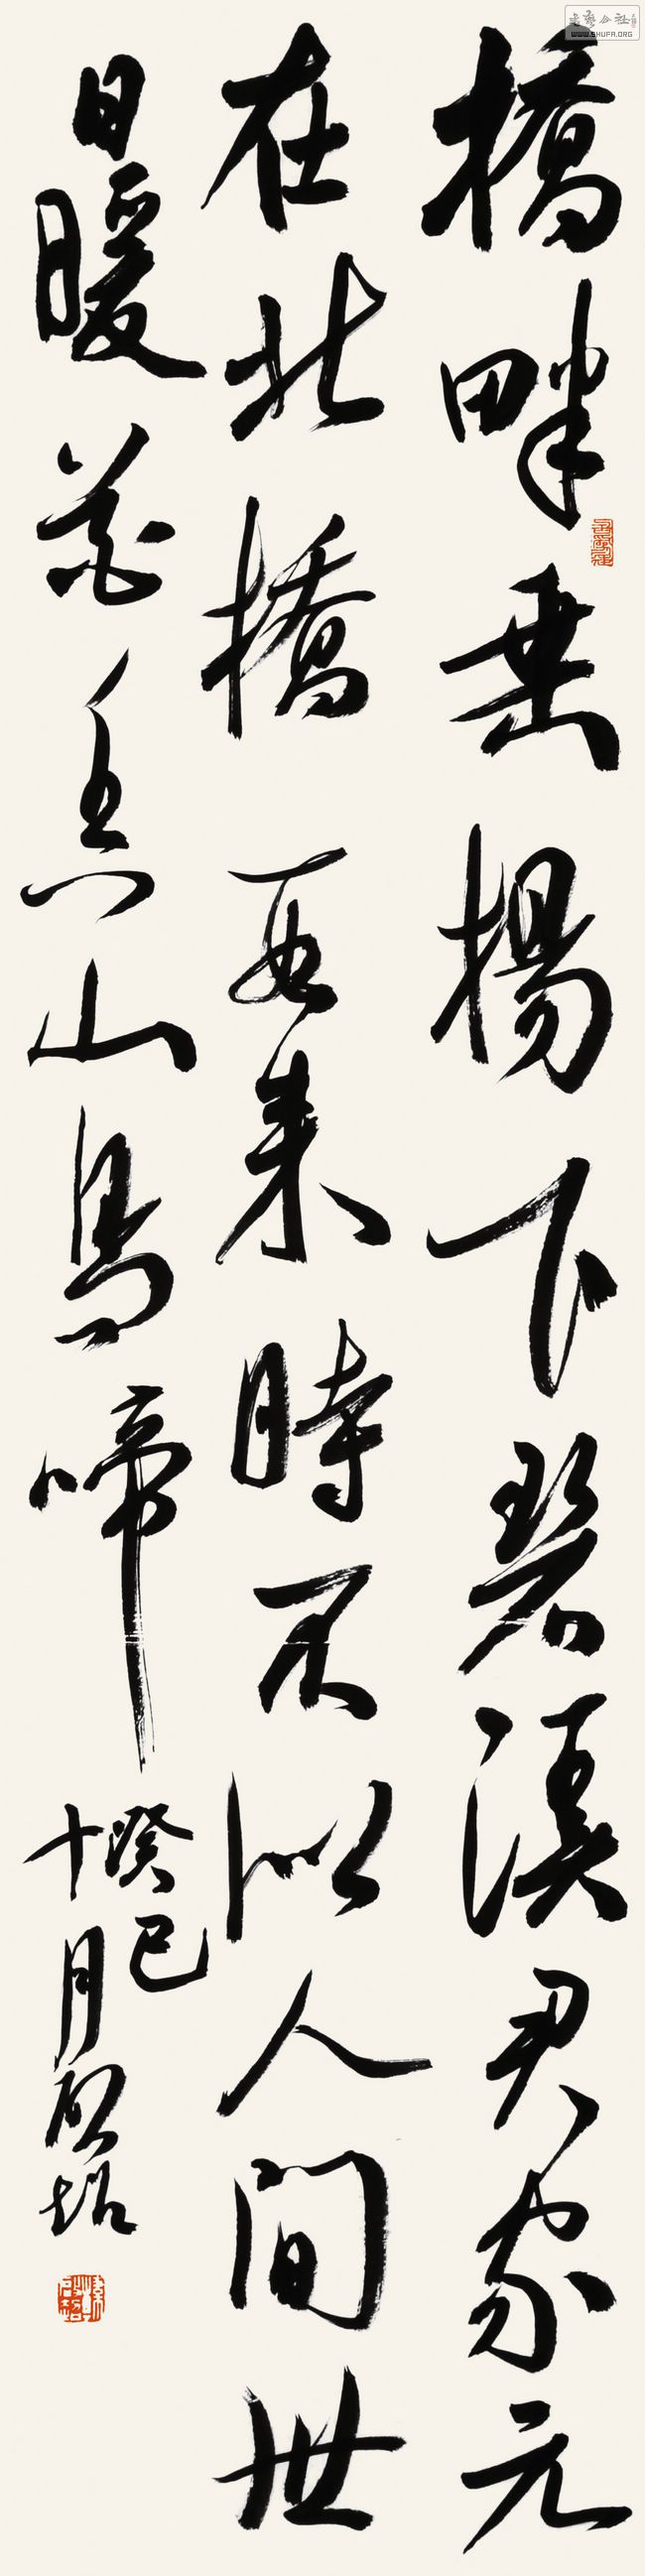 橋畔垂楊下碧溪君家元
在北橋西来時不似人間世
日暖花香山鳥啼
癸巳
十月
WWW.SHUFA.ORG